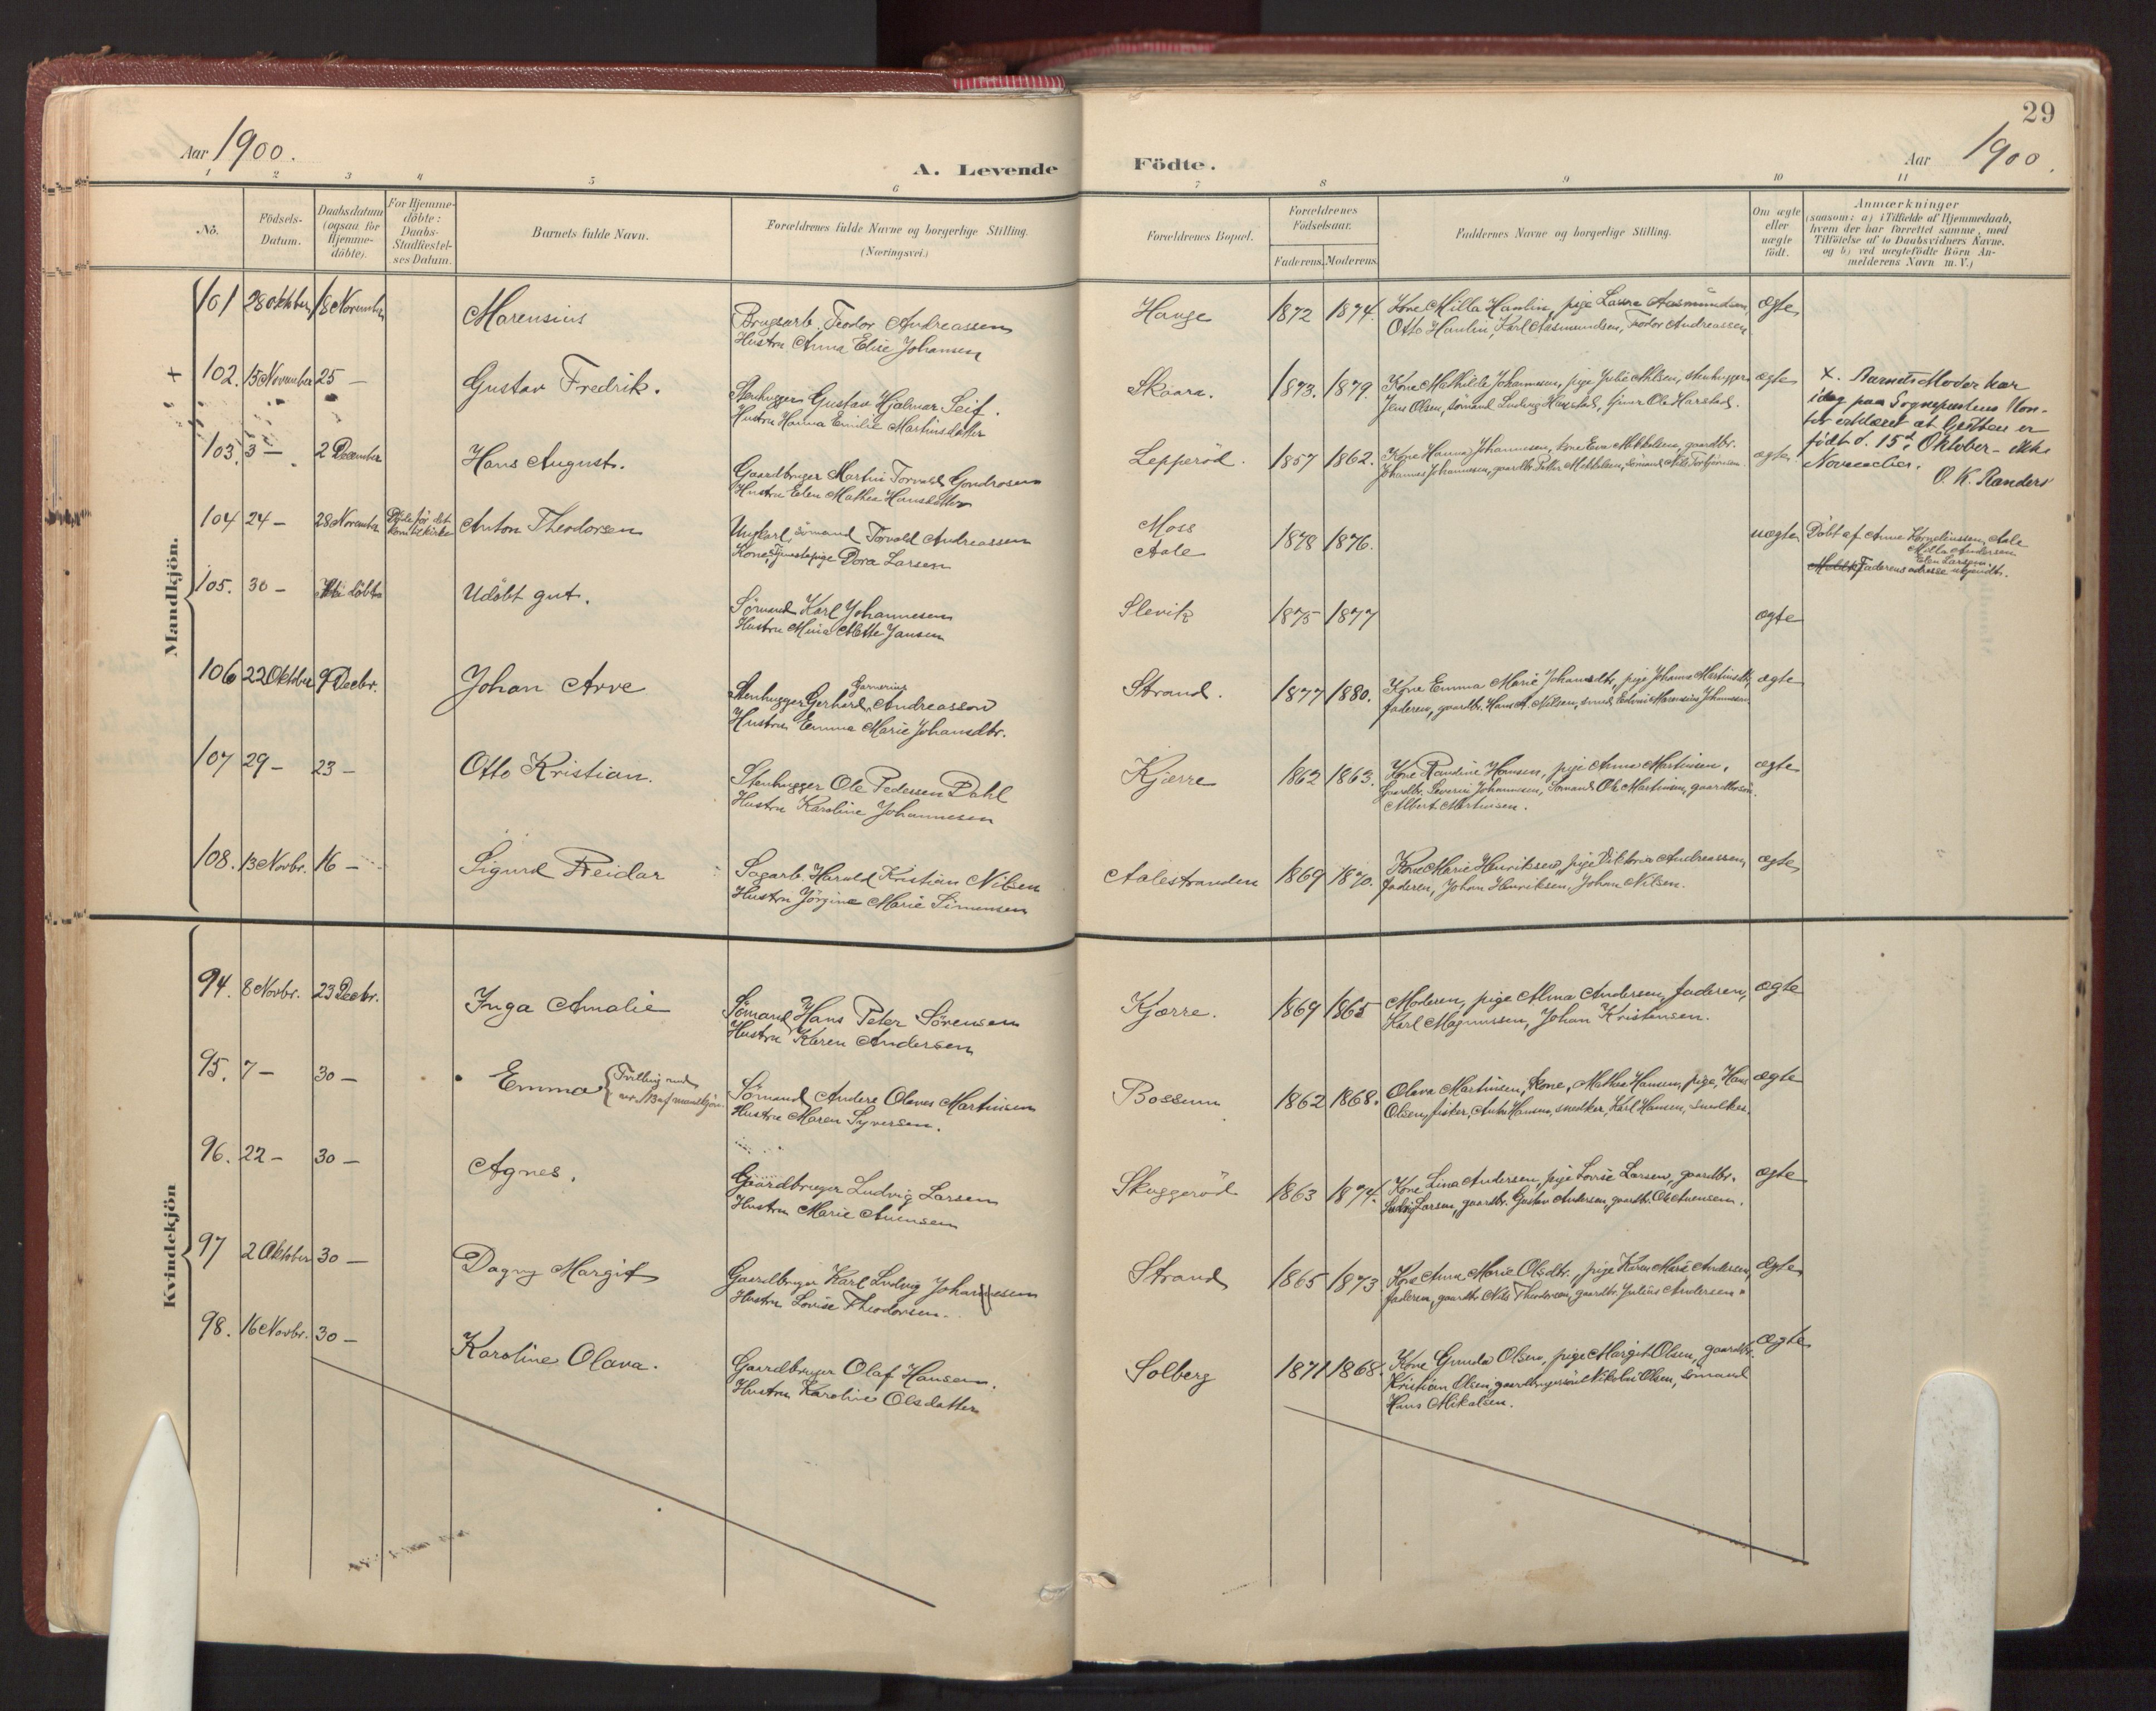 29
Aar 1900.
A. Levende Födte.
Aar 1900.
1 2 3 4 5 6 7 8 9 10 11
No.
Födsels-
Datum.
Daabsdatum
(ogsaa for
Hjemme-
döbte).
For Hjemme-
döbte:
Daabs-
Stadfæstel-
ses Datum.
Barnets fulde Navn.
Forældrenes fulde Navne og borgerlige Stilling.
(Næringsvei.)
Forældrenes Bopæl.
Forældrenes
Födselsaar.
Faderens. Moderens.
Faddernes Navne og borgerlige Stilling.
Om ægte
eller
uægte
födt.
Anmærkninger
(saasom: a) i Tilfælde af Hjemmedaab,
hvem der har forrettet samme, med
Tilföielse af to Daabsvidners Navne.
og b) ved uægtefödte Börn An-
melderens Navn m. V.)
Mandkjön.
101 28 Oktober 18 November Marensius
Brugsarb. Teodor Andreassen
Hustru Anna Elise Johansen
Hauge 1872 1874.
Kone Milla Hamlin, pige Laura Aasmundsen,
Otto Hamlin, Karl Aasmundsen, Teodor Andreassen
ægte
+ 102. 15 November 25 — Gustav Fredrik.
Stenhugger Gustav Hjalmar Seif.
Hustru Hanna Emilie Martinsdatter
Skaara. 1873. 1879.
Kone Mathilde Johannesen, pige Julie Nilsen, stenhugger
Jens Olsen, sömand Ludvig Harstad, Ole Harstad.
ægte
x. Barnets Moder har
idag paa Sognepræstens Kon-
tor erklæret at Gutten er
födt d. 15de Oktober - ikke
November.
O. K. Randers
103. 3 — 2 December Hans August.
Gaardbruger Martin Torvald Gondrosen
Hustru Elen Mathea Hansdatter
Lepperöd. 1857 1862.
Kone Hanna Johannesen, kone Eva Mikkelsen, gaardbr.
Johannes Johannesen, gaardbr. Mikkelsen, sömand Nils Torbjörnsen
ægte
104 24 — 28 November Döde för det
kom til kirke Anton Theodorsen
Ungkarl, sömand Torvald Andreassen
Kone, Tjenestepige Dora Larsen
Moss
Aale
1878 1876.
uægte
Döbt af Anne Korneliussen, Aale
Milla Andersen
Elen Larsen.
Faderens adresse ukjendt.
105. 30 — Ikke döbt Udöbt gut.
Sömand Karl Johannesen
Hustru Mina Mette Jansen
Slevik 1875 1877 ægte
106 22 Oktober 9 Decbr. Johan Arve
Garnerius
Stenhugger Gerhard Andreasson
Hustru Emma Marie Johansdtr.
Strand. 1877 1880.
Kone Emma Marie Johansdtr, pige Johanne Martinsdtr,
faderen, gaardbr. Hans A. Nilsen, smed Edvin Marensius Johannesen
ægte
107 29 — 23 — Otto Kristian.
Stenhugger Ole Pedersen Dahl
Hustru Karoline Johannesen
Kjærre 1862 1863.
Kone Randine Hansen, pige Anna Martinsen,
Gaardbr. Severin Johannesen, Sömand Ole Martinsen, gaardbrsön
Albert Martinsen.
ægte
108. 13 Novbr. 16 — Sigurd Reidar
Sagarb. Harald Kristian Nilsen
Hustru Jörgine Marie Simensen
Aalestranden 1869 1870.
Kone Marie Henriksen, pige Viktoria Andreassen,
faderen, Johan Henriksen, Johan Nilsen.
ægte
Kvindekjön
94. 8 Novbr. 23 Decbr. Inga Amalie
Sömand Hans Peter Sörensen
Hustru Karen Andersen
Kjærre. 1869 1865
Moderen, pige Alma Andersen, faderen,
Karl Magnussen, Johan Kristensen.
ægte
95. 7 — 30 — Emma { Tvilling med
Sömand Anders Olaves Martinsen
Hustru Maren Syversen.
Bossum 1862 1868.
Olava Martinsen, kone, Mathea Hansen, pige, Hans
Olsen, fisker, Anton Hansen, snedker, Karl Hansen, snedker.
ægte
96. 22 — 30 — Agnes.
Gaardbruger Ludvig Larsen
Hustru Marie Auensen
Skuggeröd 1863 1874.
Kone Lina Andersen, pige Lovise Larsen, gaardbr.
Ludvig Larsen, gaardbr. Gustav Andersen, gaardbr. Ole Auensen.
ægte
97 2 Oktober 30 — Dagny Margit
Gaardbruger Karl Ludvig Johannesen
Hustru Lovise Theodorsen.
Strand 1865 1873
Kone Anna Marie Olsdtr., pige Karen Marie Andersen,
faderen, gaardbr. Nils Theodorsen, gaardbr. Julius Andersen
ægte
98. 16 Novbr. 30 — Karoline Olava.
Gaardbruger Olaf Hansen.
Hustru Karoline Olsdatter
Solberg 1871 1868.
Kone Gunda Olsen, pige Margit Olsen, gaardbr.
Kristian Olsen, gaardbrugersön Nikolai Olsen, sömand
Hans Mikalsen.
ægte